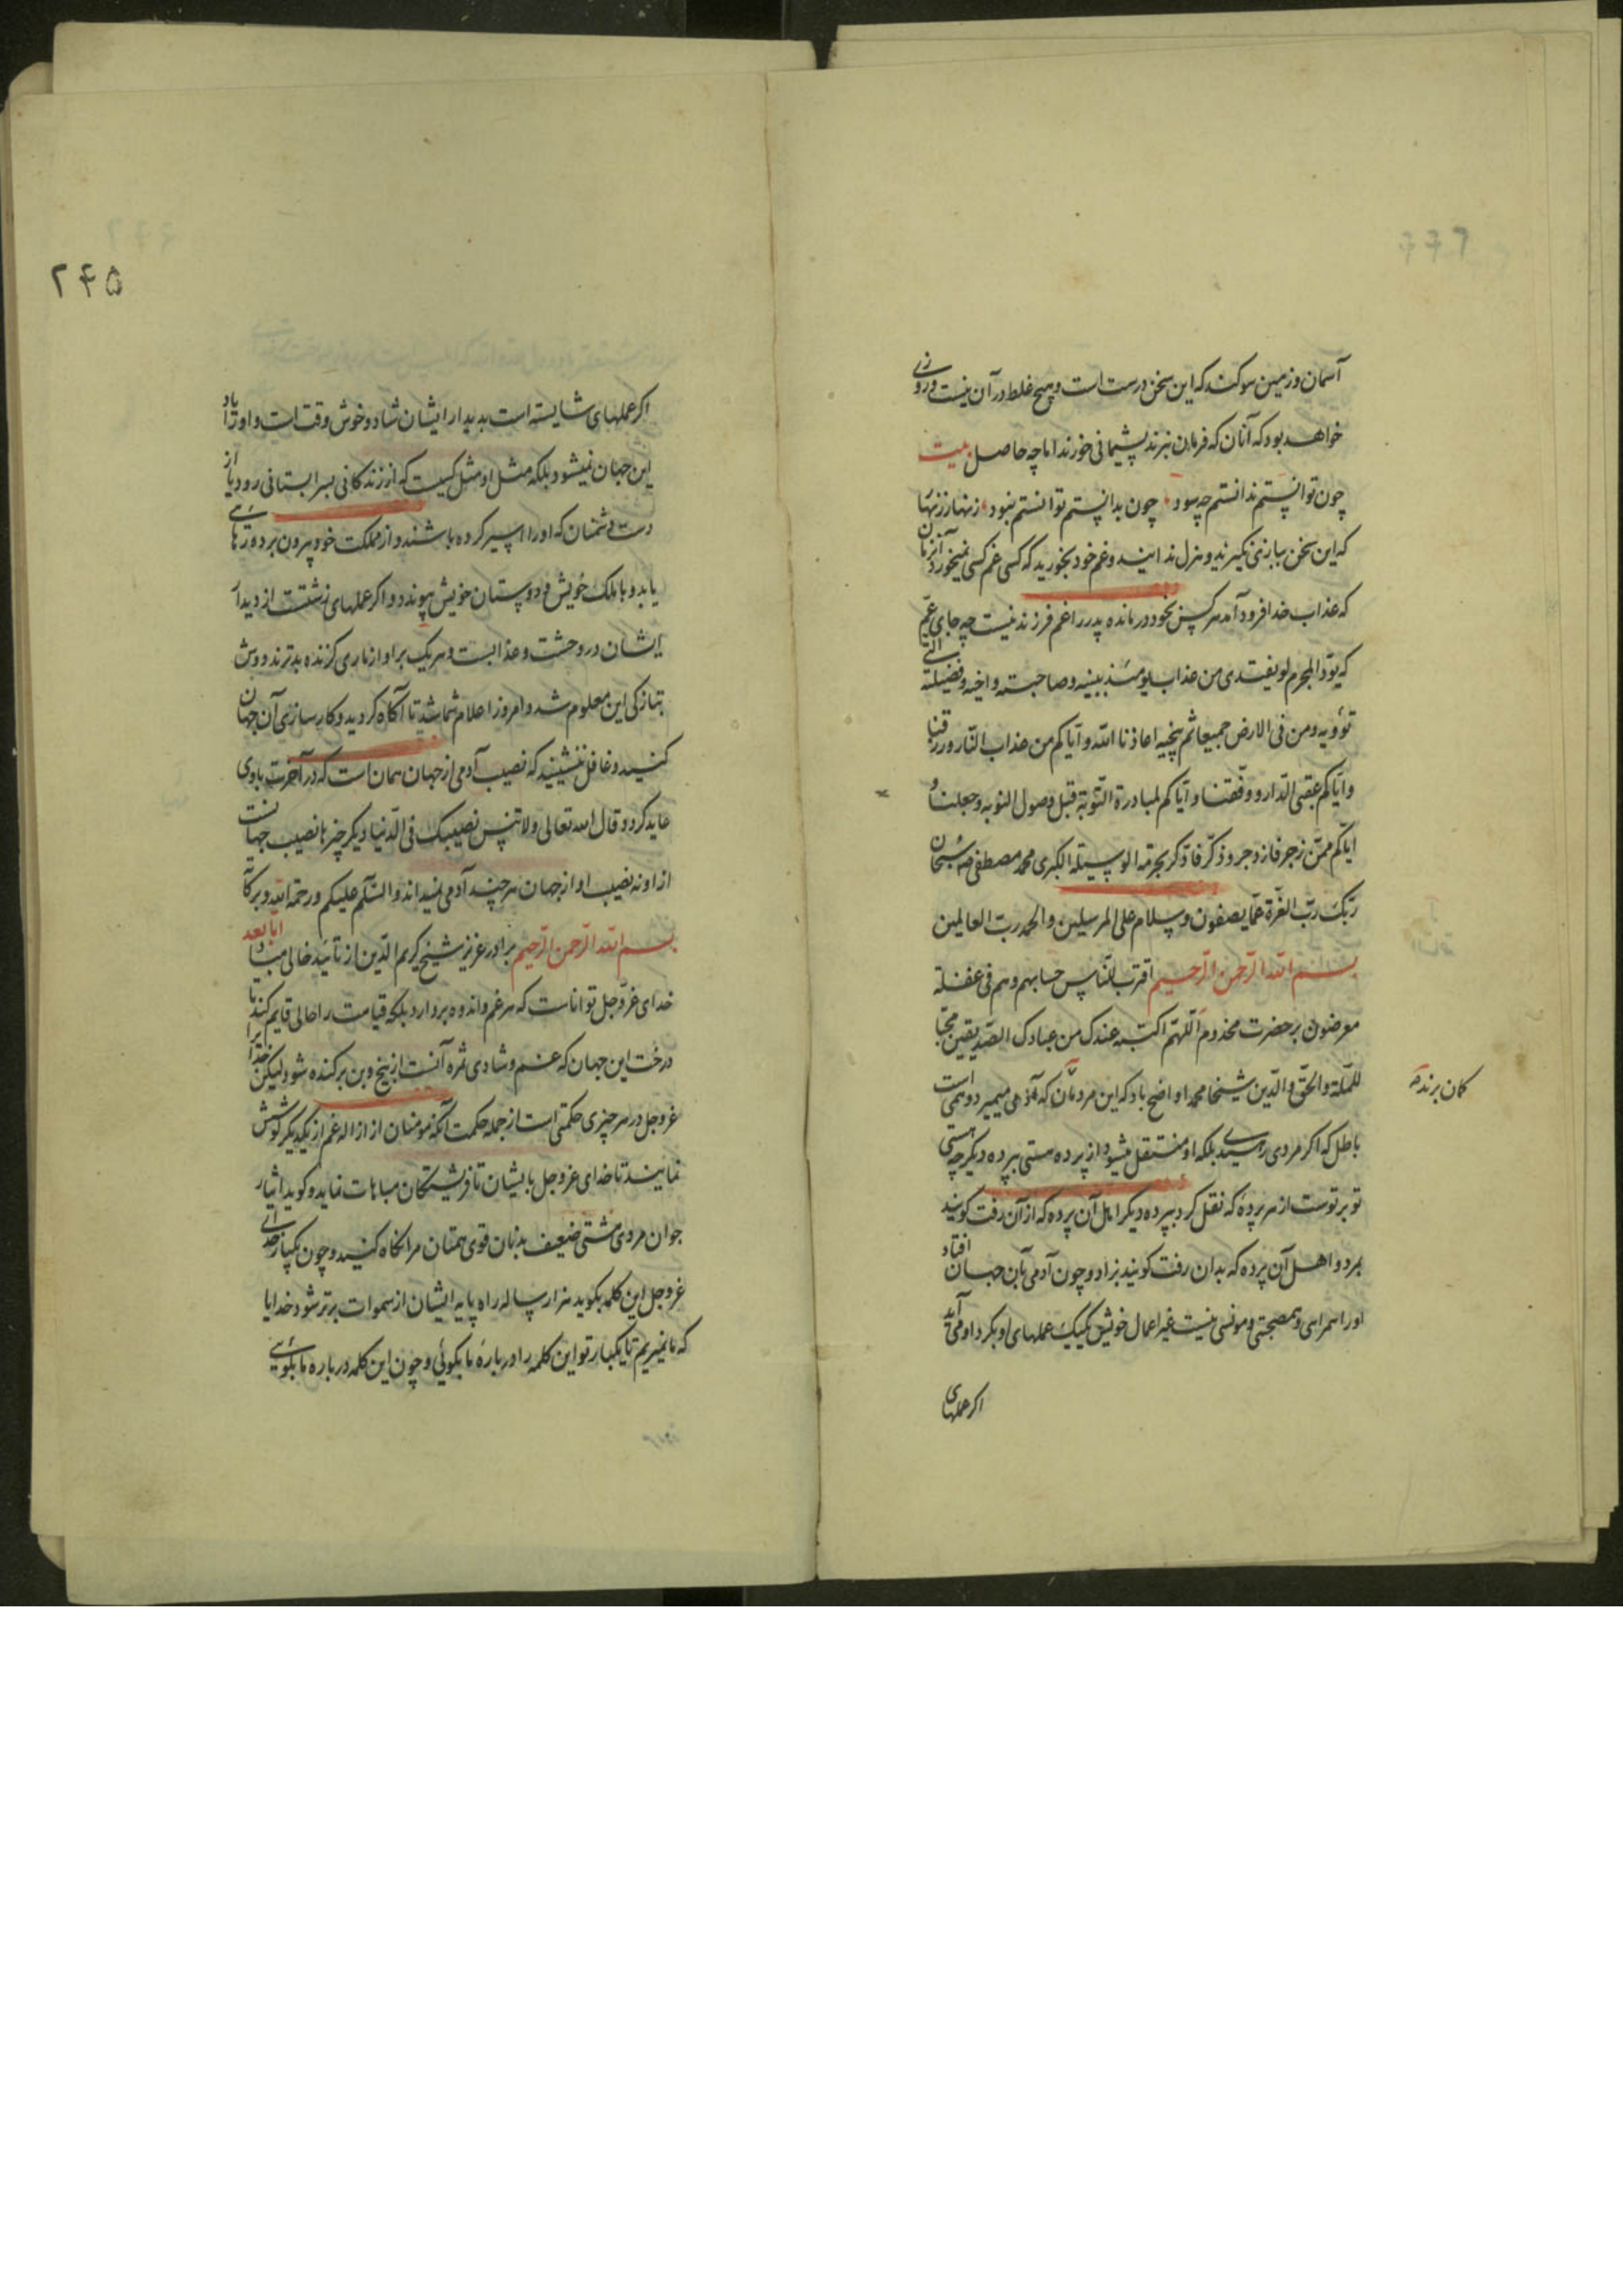 آسمان و زمین سوکند که این سخن درست است و هیچ غلط در آن نیست و روزی
خواهد بود که آنان که فرمان نبرند پشیمانی خورند اما چه حاصل بیت
چون توانستم ندانستم چه سود چون بدانستم توانستم نبود زنهار زنهار
که این سخن ببازی نکیرند و هزل ندانیند و غم خود بخورید که کسی غم کسی نمیخورد آنزمان
که عذاب خدا فرود آمد هر کس بخود درمانده پدر را غم فرزند نیست چه جای غم
که یودّ المجرم لو یفتدی من عذاب یومئذ ببنیه و صاحبته و اخیه و فصیلته التی
تؤویه و من فی الارض جمیعا ثم ینجیه اعاذنا الله و ایاکم من عذاب النار و رزقنا
و ایاکم عقبی الدار و وفقنا و ایاکم لمبادرة التوبة قبل وصول النوبه و جعلنا و
ایاکم ممن زجر فازدجر و ذکر فاذکر بحرمة الوسیلة الکبری محمد مصطفی سبحان
ربک رب العزة عما یصفون و سلام علی المرسلین و الحمد رب العالمین
بسم الله الرحمن الرحیم اقترب للناس حسابهم و هم فی غفلة
معرضون بر حضرت مخدوم اللهم اکتبه عندک من عبادک الصدیقین
للملة و الحق و الدین شیخا محمدا واضح باد که این مردمان که آدمی میمیرد وهمی است
کمان برند
باطل که اکر مردی بلکه او منتقل میشود از پرده هستی بپرده دیکر چه هستی
تو بر توست از هر پرده که نقل کرد بپرده دیکر اهل آن پرده که از آن رفت کویند
بمرد و اهل آن پرده که بدان رفت کویند بزاد و چون آدمی بآن جهان افتاد
او را همراهی و هم صحبتی و مونسی نیست غیر اعمال خویش یکیک عملهای او بکرد او می آید
اکر عملهای
۲۴۵
اکر عملهای شایسته است بدیدار ایشان شاد و خوش وقت است و او را یاد
این جهان نمیشود بلکه مثل او مثل کسیست که از زندکانی بسرابستانی رود یا از
دست دشمنان که او را اسیر کرده باشند و از مملکت خود بیرون برده رهائی
یابد و با ملک خویش و دوستان خویش پیوندد و اکر عملهای زشتست از دیدار
ایشان در وحشت و عذابست و هر یک بر او از ماری کزنده بدترند و دوش
بتازکی این معلوم شد و امروز اعلام شما شد تا آکاه کردید و کارسازی آن جهان
کنید و غافل ننشینید که نصیب آدمی از جهان همان است که در آخرت با وی
عاید کردد قال الله تعالی و لا تنس نصیبک فی الدنیا دیکر چیزها نصیب جهانست
از او نه نصیب او از جهان هر چند آدمی نمیداند و السلام علیکم و رحمة الله و برکاته
بسم الله الرحمن الرحیم برادر عزیز شیخ کریم الدین از تائید خالی مباد اما بعد
خدای عزوجل تواناست که هر غم و اندوه بردارد بلکه قیامت را حالی قایم کند تا
درخت این جهان که غم و شادی ثمره آنست از بیخ و بن برکنده شود لیکن خدایرا
عزوجل در هر چیزی حکمتی است از جمله حکمت آنکه مومنان از ازاله غم از یکدیکر کوشش
نمایند تا خدای عزوجل بایشان تا فریشتکان مباهات نماید و کوید ایثار
جوان مردی مشتی ضعیف بدنان قوی همتان مرا نکاه کنید و چون یکبار خدای
عزوجل این کلمه بکوید هزار ساله راه پایه ایشان از سموات برتر شود خدایا
که ما نمیریم تا یکبار تو این کلمه را در باره ما بکوئی و چون این کلمه در باره ما بکوئی